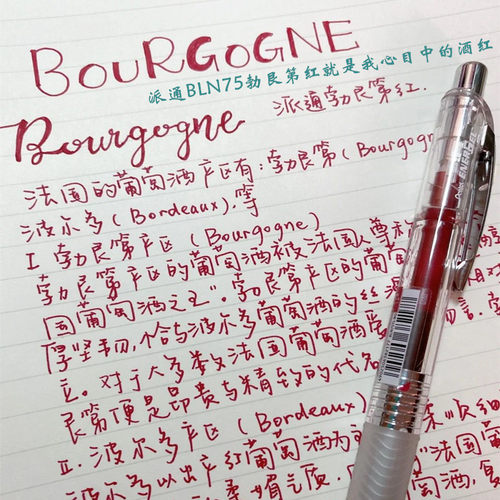 BOURGOGNE
派通BLN75勃艮第红就是我心目中的酒红
派通勃艮第红.
Bourgogne
法国的葡萄酒产区有:勃艮第(Bourgogn
波尔多(Bordeaux).等
I 勃艮第产区(Bourgogne)
勃艮第产区的葡萄酒被法国人尊称
国葡萄酒之王".勃艮第产区的葡萄
厚坚韧,恰与波尔多葡萄酒的丝
立。对于大多数法国葡萄酒爱
艮第便是品贵与精致的代名
II.波尔多产区(Bordeaux)
波尔多以出产红葡萄酒为
"法国葡萄
Pentel ENERGEL